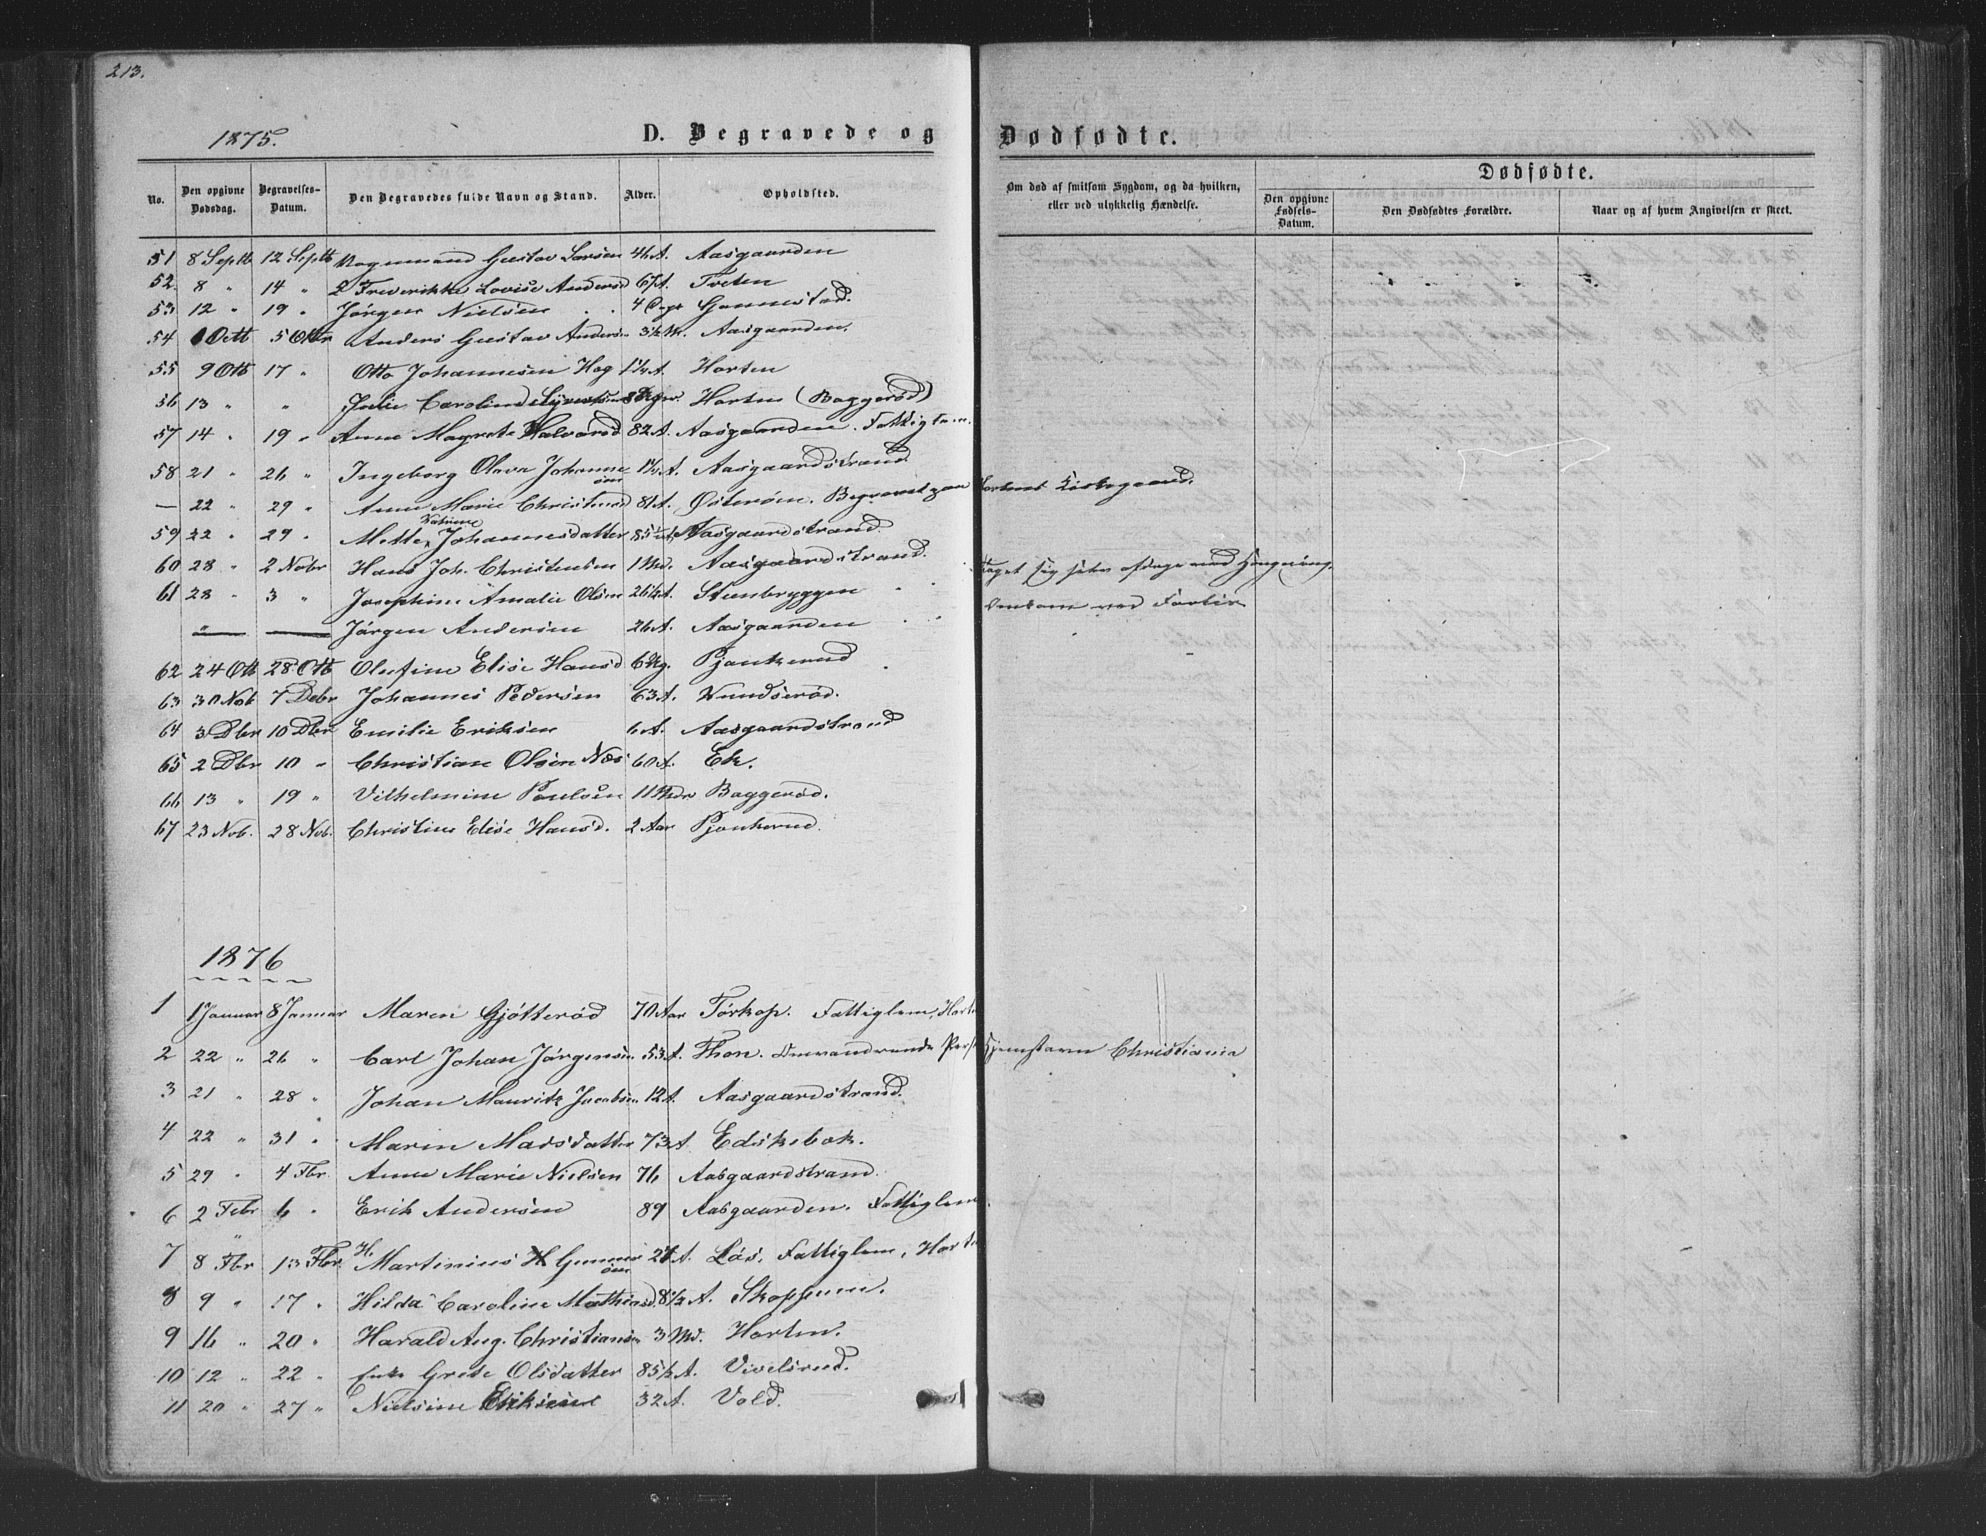 213.
1875.
D. Begravede og Dødfødte.
No.
Den opgivne Dødsdag.
Begravelses-Datum.
Den Begravedes fulde Navn og Stand.
Alder.
Opholdsted.
Om død af smitsom Sygdom, og da hvilken, eller ved ulykkelig Hændelse.
Dødfødte.
Den opgivne Fødsels-Datum.
Den Dødfødtes Forældre.
Naar og af hvem Angivelsen er skeet.
51 8 Septb 12 Septb Gustav Larsen Aasgaarden
52. 8 " 14 " Frederikke Lovise Andersd Tveten
53 12 " 19 " Jørgen Nielsen 4 Dage Gannestad.
54 Octt 5 Otbr Anders Gustav Andersen Aasgaarden.
55 9 Otb 17 " Otto Johannesen Hog Horten
56 13 " " Julie Caroline Horten (Baggerød)
57 14 " 19 " Anne Magrete Halvorsd 82 A. Aasgaarden. Fattiglem.
58 21 " 26 " Ingeborg Olava Johannesen Aasgaardstrand
— 22 " 29 " Anne Marie Christensd 81 A. Østerøen. Begravet paa Hortens Kirkegaard.
59 22 " 29 " Mette Katrine Johannesdatter Aasgaardstrand
60 28 " 2 Nobr Hans Joh. Christensen 1 Md. Aasgaardstrand.
61 28 " 3 " Josephine Amalie Olsen Steenbryggen " Taget sig selv afdage ved Hængning.
" — Jørgen Andersen 26 A. Aasgaarden " Omkom ved Forlis
62 24 Otb 28 Otb Olefine Elise Hansd Pjonkerud
63 30 Nob 7 Debr Johannes Pedersen 63 A. Vundserød.
64 3 Dbr 10 Dbr Emilie Eriksen 6 A. Aasgaardstrand
65 2 Dbr 10 " Christian Olsen Næs 60 A. Ek.
66 13 " 19 " Vilhelmine Poulsen 11 Mdr Baggerød.
67 23 Nob. 28 Nob. Christine Elise Hansd. 2 Aar Pjonkerud.
1876
1 1 Januar 8 Januar Maren Gjøtterød 70 Aar Torkop. Fattiglem, Horten
2 22 " 26 " Carl Johan Jørgensen 53 A. Thon. Omvandrende Pers Hjemstavn Christiania
3 21 " 28 " Johan Mauritz Jacobsen 12 A. Aasgaardstrand.
4 22 " 31 " Maren Madsdatter 73 A Edskebæk.
5 29 " 4 Fbr. Anne Marie Nielsen 76 Aasgaardstrand.
6 2 Febr 6 " Erik Andersen 89 Aasgaarden. Fattiglem.
7 8 Fbr 13 Fbr H. Martinius Løs. Fattiglem, Horten
8 9 " 17 " Hilda Caroline Mathiasd. 8 1/2 A. Skoppum.
9 16 " 20 " Harald Aug. Christiansen 3 Md. Horten.
10 12 " 22 " Enke Grete Olsdatter 85 1/2 A. Vivelsrud.
11 20 " 27 " Nielsine Eriksen 32 A. Vold.